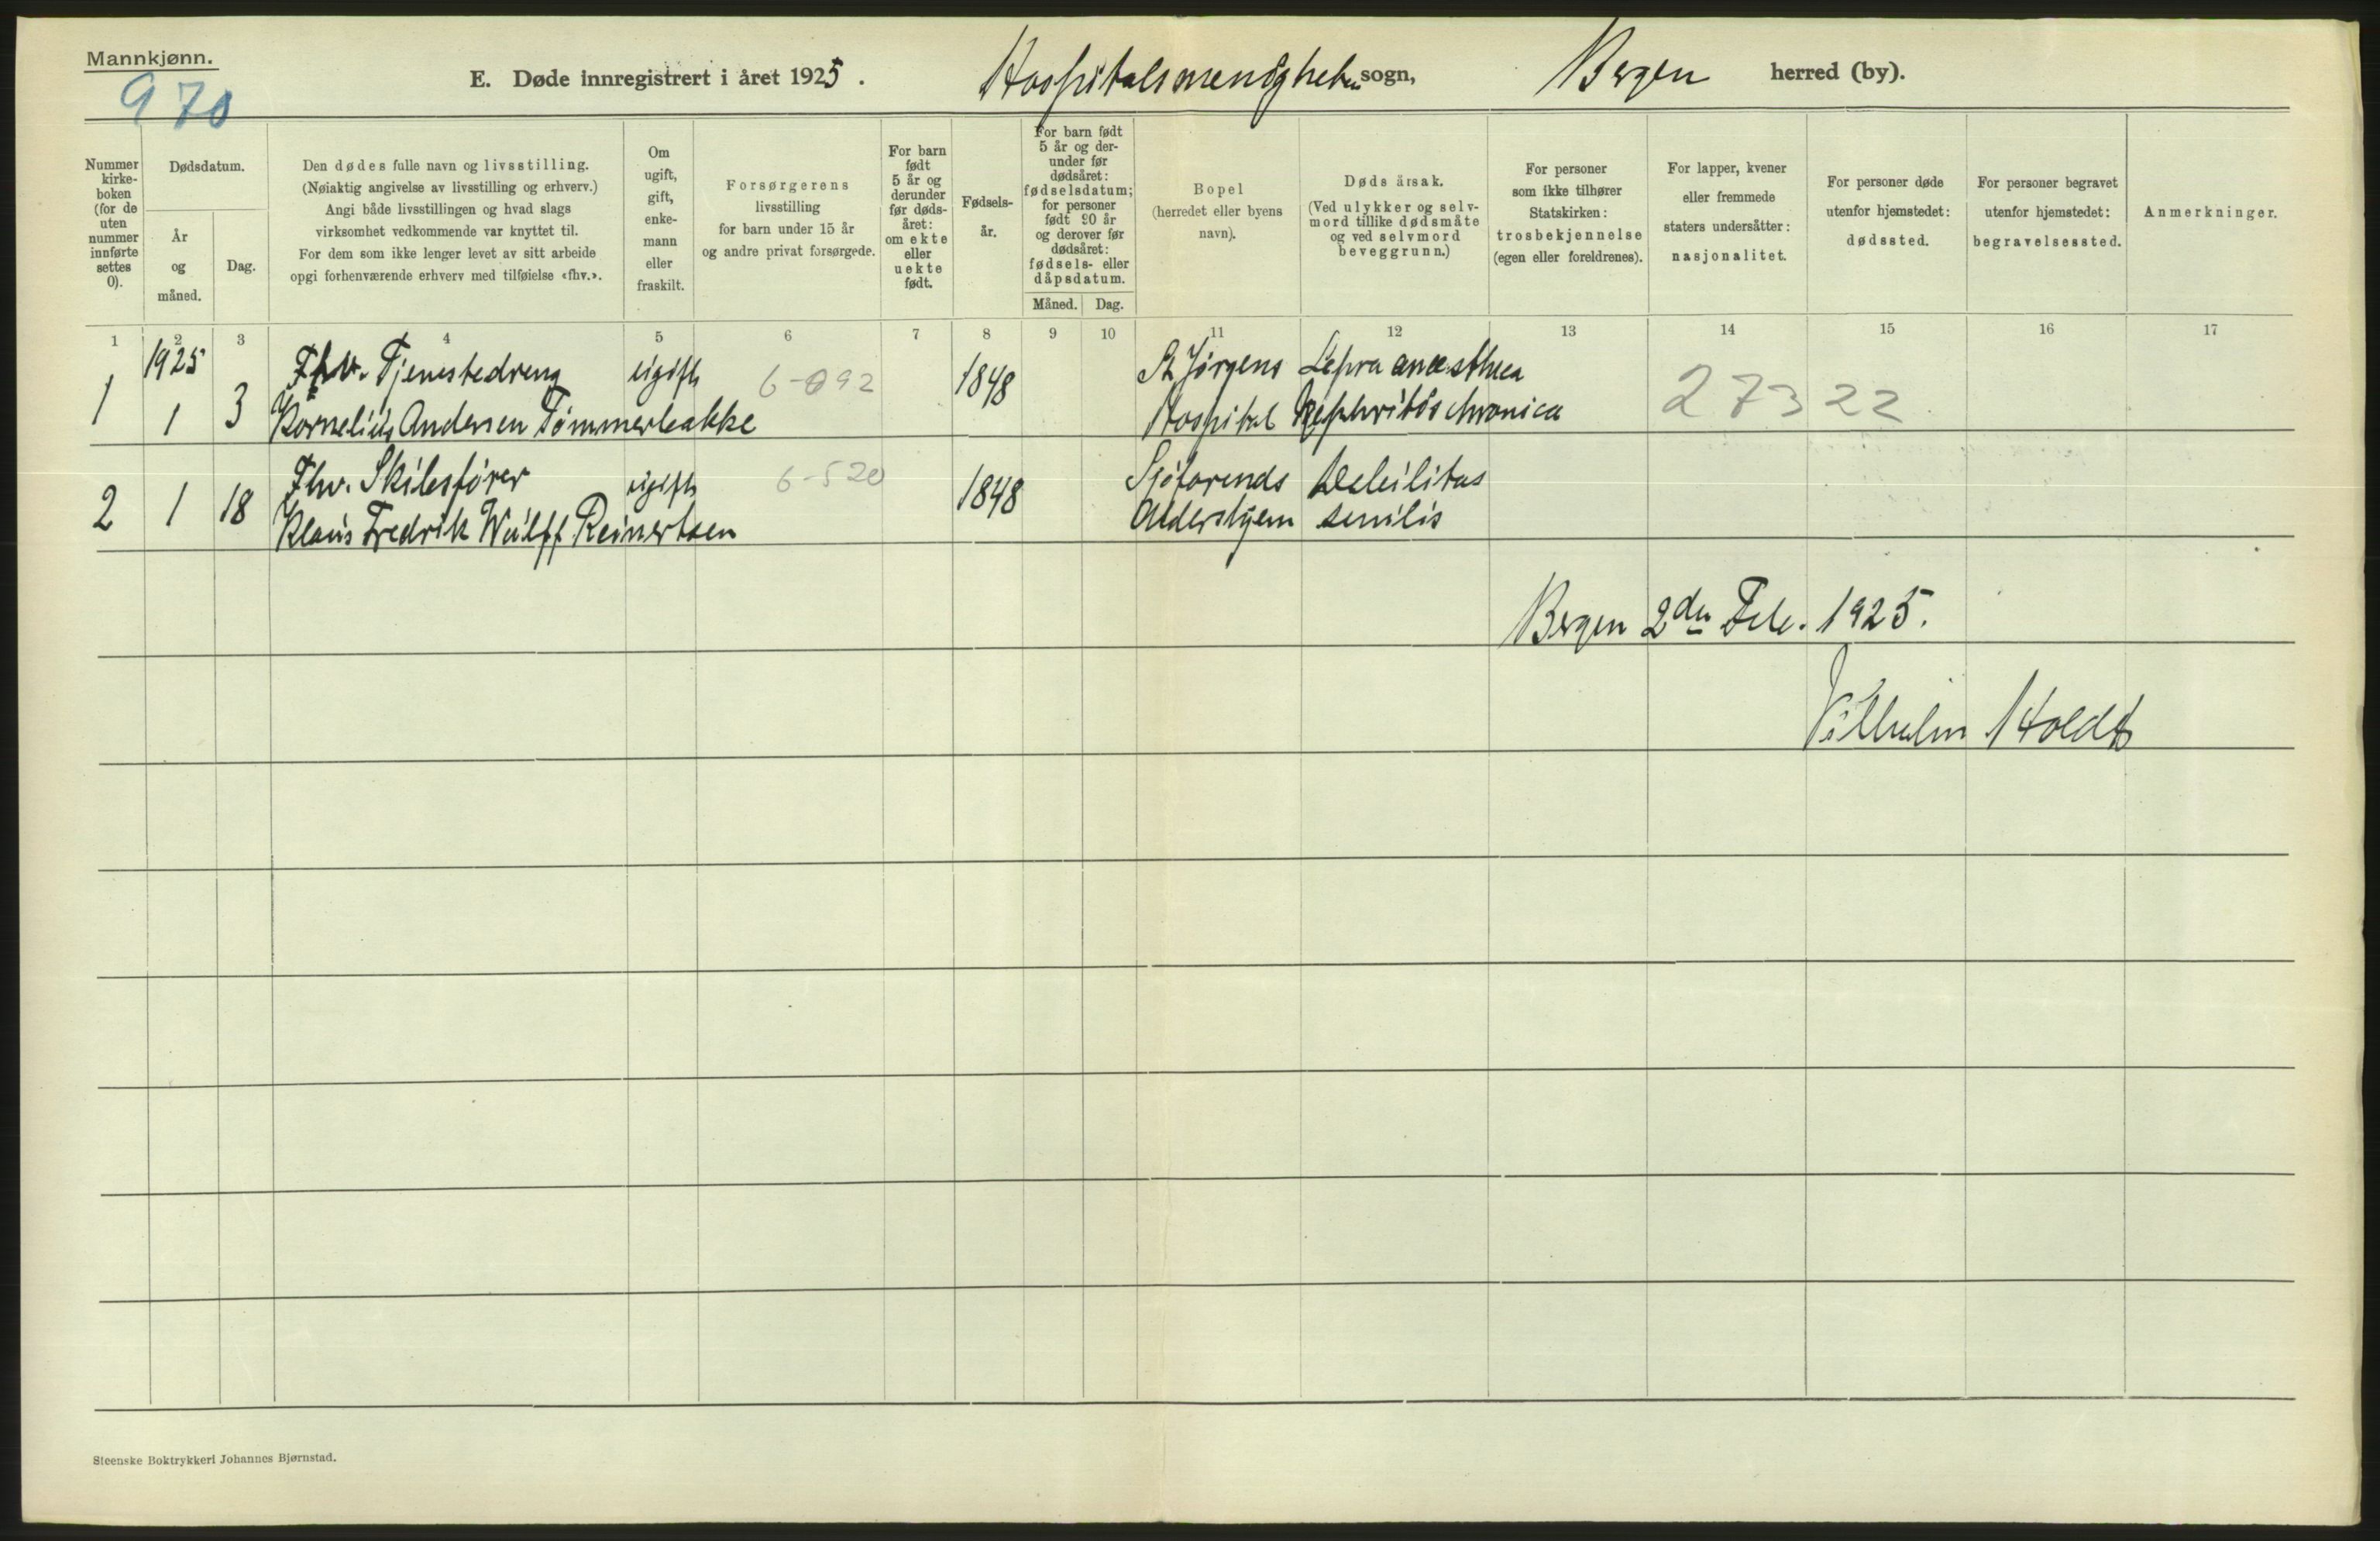 Mannkjønn.
970
E. Døde innregistrert i året 1925. Hospitalsmenigheten sogn, Bergen herred (by).
Nummer
kirke-
boken
(for de
uten
nummer
innførte
settes
0).
Dødsdatum.
År
og
måned.
Dag.
Den dødes fulle navn og livsstilling.
(Nøiaktig angivelse av livsstilling og erhverv.)
Angi både livsstillingen og hvad slags
virksomhet vedkommende var knyttet til.
For dem som ikke lenger levet av sitt arbeide
opgi forhenværende erhverv med tilføielse «fhv.».
Om
ugift,
gift,
enke-
mann
eller
fraskilt.
Forsørgerens
livsstilling
for barn under 15 år
og andre privat forsørgede.
For barn
født
5 år og
derunder
før døds-
året:
om ekte
eller
uekte
født.
Fødsels-
år.
For barn født
5 år og der-
under før
dødsåret:
fødselsdatum;
for personer
født 90 år
og derover før
dødsåret:
fødsels- eller
dåpsdatum.
Måned. Dag.
Bopel
(herredet eller byens
navn).
Dødsårsak.
(Ved ulykker og selv-
mord tillike dødsmåte
og ved selvmord
beveggrunn.)
For personer
som ikke tilhører
Statskirken:
trosbekjennelse
(egen eller foreldrenes).
For lapper, kvener
eller fremmede
staters undersåtter:
nasjonalitet.
For personer døde
utenfor hjemstedet:
dødssted.
For personer begravet
utenfor hjemstedet:
begravelsessted.
Anmerkninger.
1 2 3 4 5 6 7 8 9 10 11 12 13 14 15 16 17
1925 Fhv. Tjenestedreng ugift 6-092 1848 St Jörgens Lepra anæsthea 27322
1 1 3 Kornelius Andersen Tömmerbakke Hospital Nephritis chronica
Fhv. Skibsförer ugift 6-520 1848 Sjöfarends Debilitas
2 1 18 Klaus Fredrik Wulff Reinertsen Aldershjem senilis
Bergen 2den Feb. 1925.
Vilhelm Holdt
Steenske Boktrykkeri Johannes Bjørnstad.